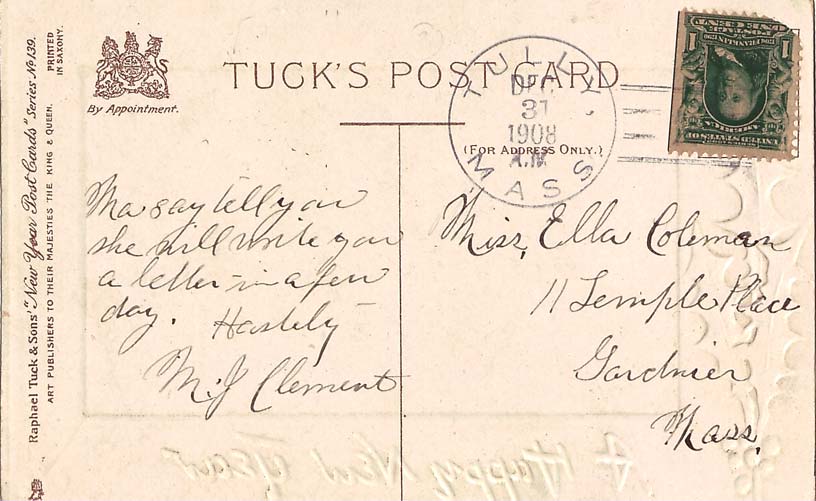 TUCK'S POST CARD
By Appointment.
(FOR ADDRESS ONLY.)
TULLY
DEC
31
1908
A.M
MASS
1 1
FRANKLIN
UNITED STATES OF
AMERICA
Ma say tell you
she will write you
a letter in a few
day. Hastily
M. J Clement
Miss, Ella Coleman
11 Temple Place
Gardnier
Mass.
Raphael Tuck & Sons' "New Year Post Cards" Series No 139.
ART PUBLISHERS TO THEIR MAJESTIES THE KING & QUEEN.
PRINTED
IN SAXONY.
A Happy New Year